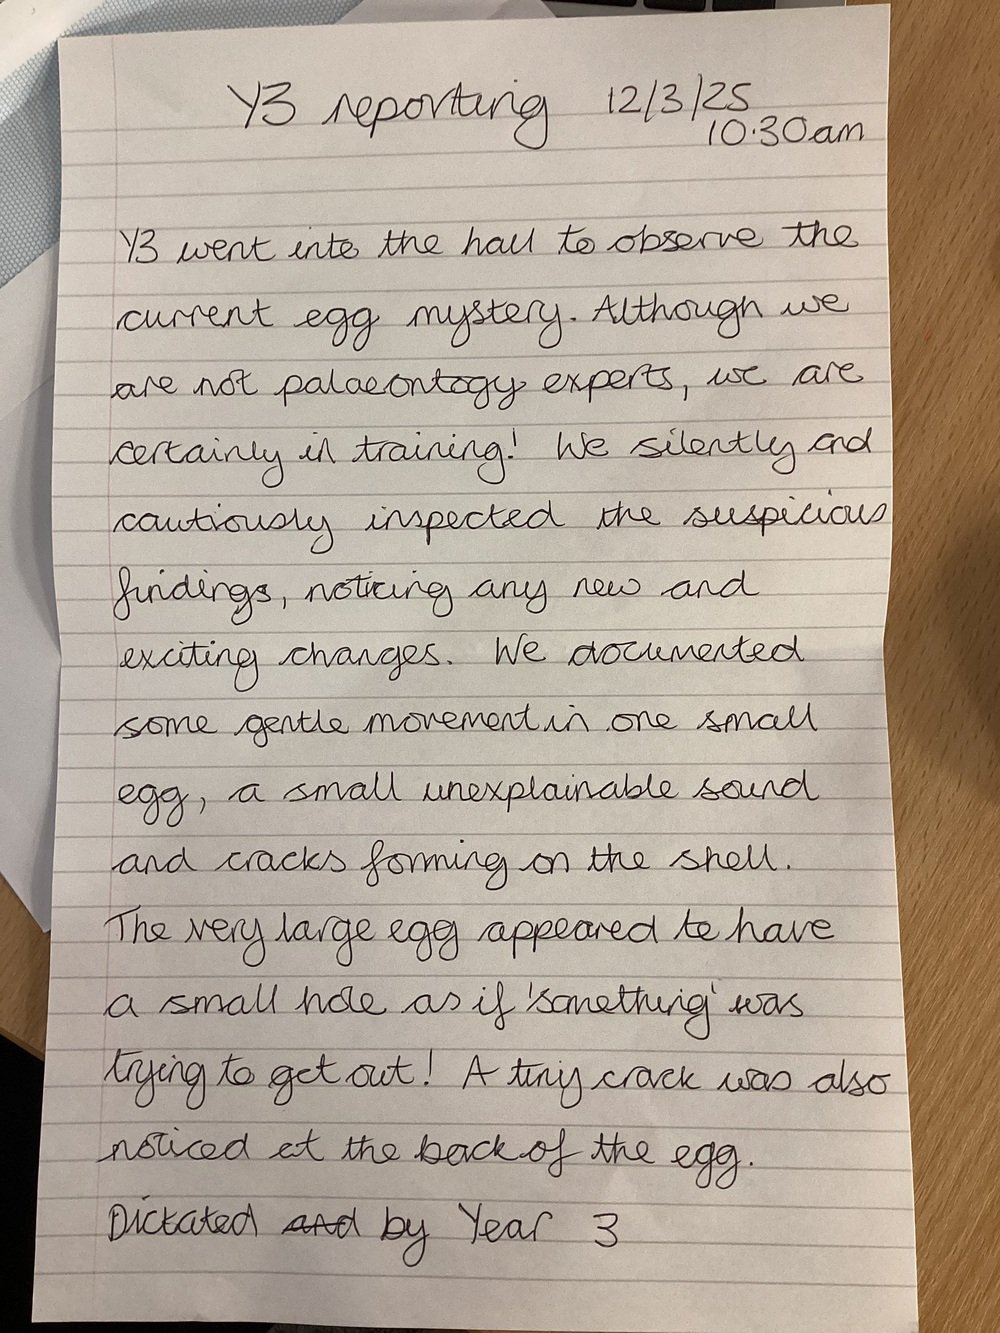 Y3 reporting 12/3/25
10.30am
Y3 went into the hall to observe the
current egg mystery. Although we
are not palaeontogy experts, we are
certainly in training! We silently and
cautiously inspected the suspicious
findings, noticing any new and
exciting changes. We documented
some gentle movement in one small
egg, a small unexplainable sound
and cracks forming on the shell.
The very large egg appeared to have
a small hole as if 'something' was
trying to get out! A tiny crack was also
noticed at the back of the egg.
Dictated and by Year 3